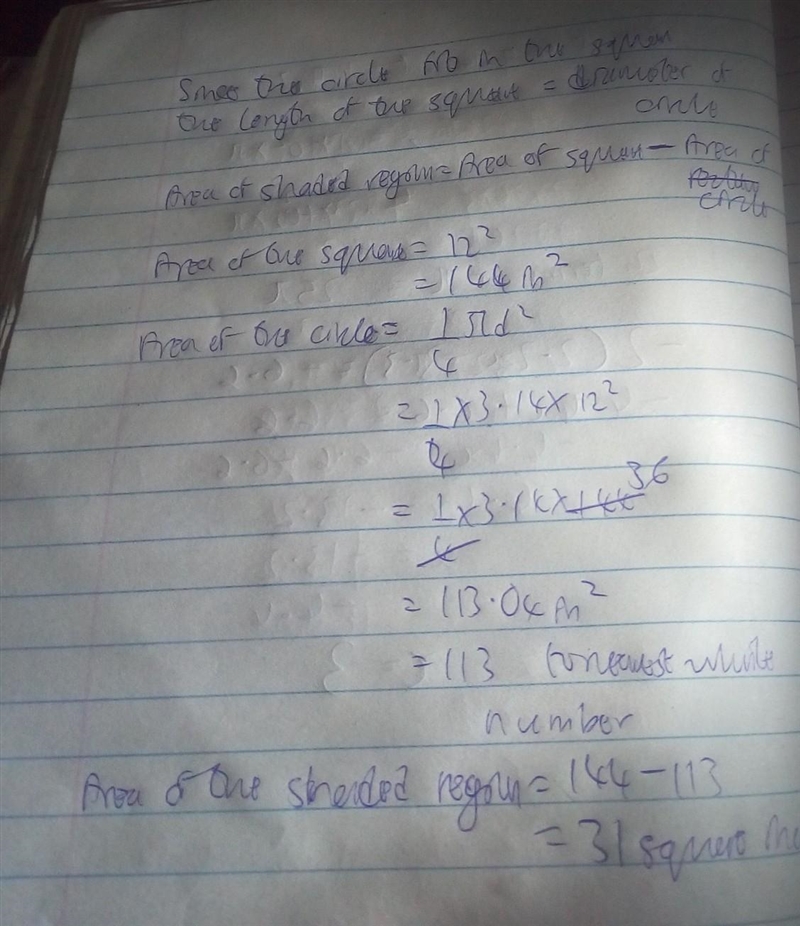 Since the circle fits in the square
the length of the square = diameter of
circle
Area of shaded region = Area of square - Area of
circle
Area of the square = 12²
= 144 m²
Area of the circle = 1πd²
4
= 1 x 3.14 x 12²
4
= 1 x 3.14 x 144 36
4
= 113.04 m²
= 113 to nearest whole
number
Area of the shaded region = 144 - 113
= 31 square